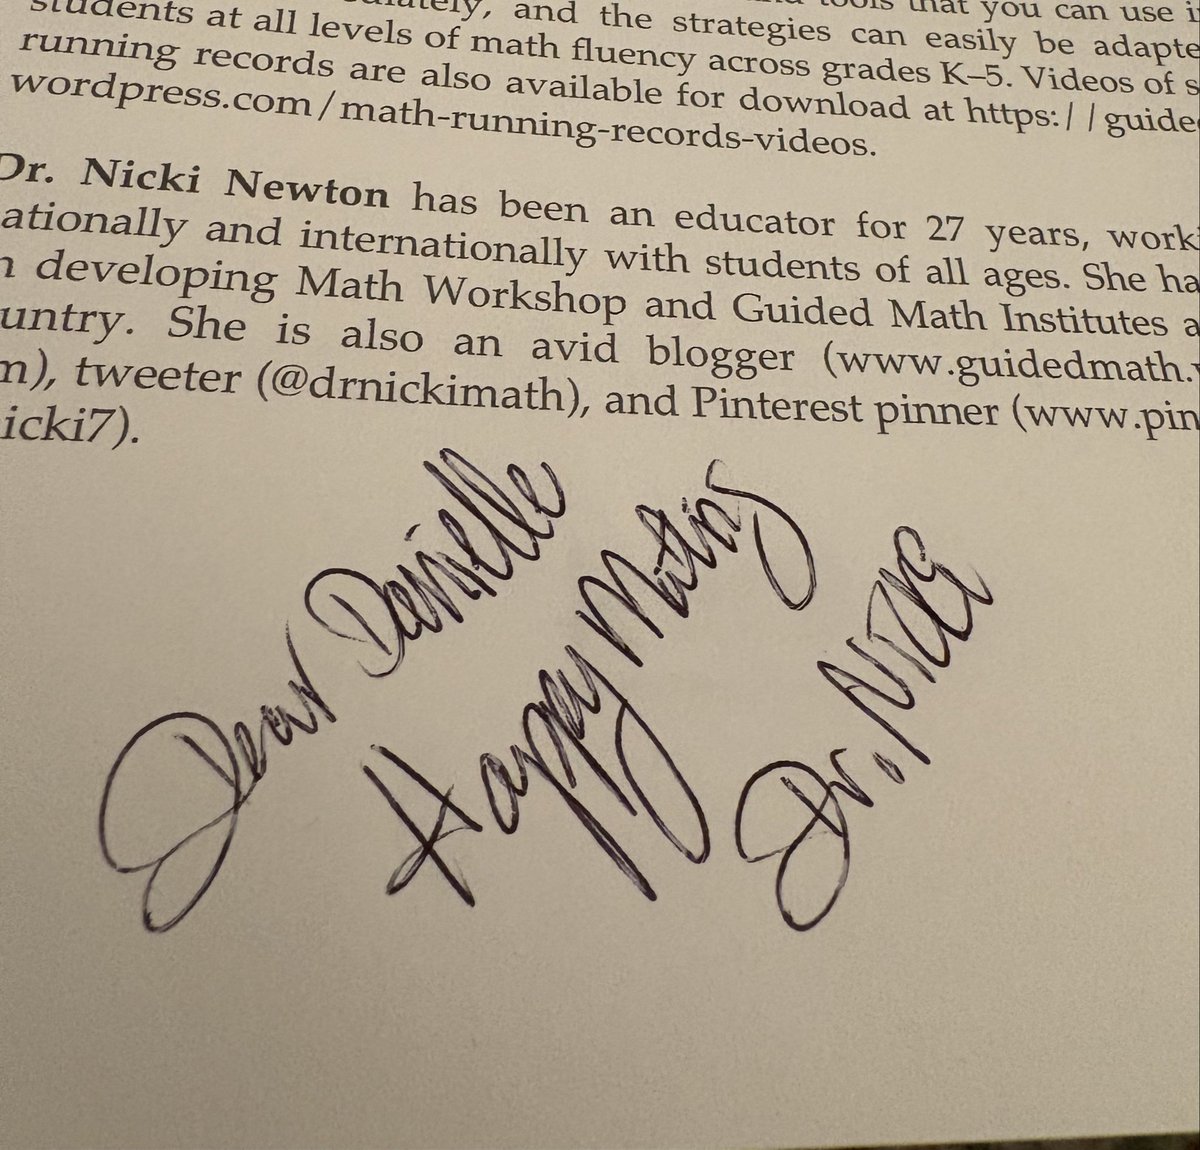 and the strategies can easily be adapte
tools that you can use i
students at all levels of math fluency across grades K–5. Videos of s
running records are also available for download at https://guide
wordpress.com/math-running-records-videos.
Dr. Nicki Newton has been an educator for 27 years, work
ationally and internationally with students of all ages. She ha
n developing Math Workshop and Guided Math Institutes a
untry. She is also an avid blogger (www.guidedmath.
m), tweeter (@drnickimath), and Pinterest pinner (www.pin
icki7).
Dear Danielle
Happy Mathing
Dr. Nicki